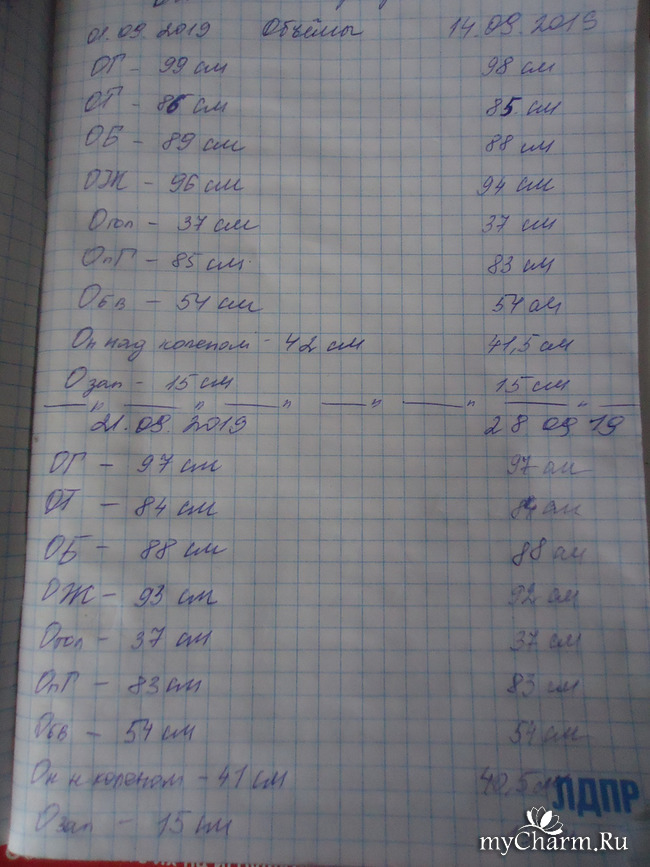 01.09.2019 Объёмы 14.09.2019
ОГ - 99 см 98 см
ОТ - 86 см 85 см
ОБ - 89 см 88 см
ОЖ - 96 см 94 см
Огол - 37 см 37 см
ОпГ - 85 см 83 см
Обв - 54 см 54 см
Оп над коленом - 42 см 41,5 см
Озап - 15 см 15 см
21.09.2019 28 09 19
ОГ - 97 см 97 см
ОТ - 84 см 84 см
ОБ - 88 см 88 см
ОЖ - 93 см 92 см
Огол - 37 см 37 см
ОпГ - 83 см 83 см
Обв - 54 см 54 см
Он н коленом - 41 см 40,5 см
ЛДПР
Озап - 15 см
myCharm.Ru